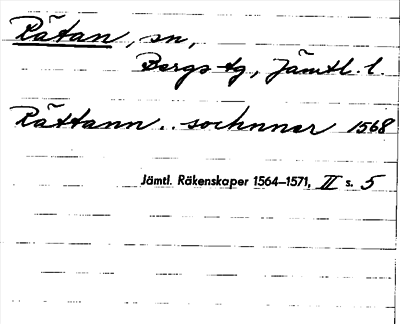 Rätan, sn,
Bergs tg, Jämtl. l.
Rättann .. sochnner 1568
Jämtl. Räkenskaper 1564–1571, II s. 5